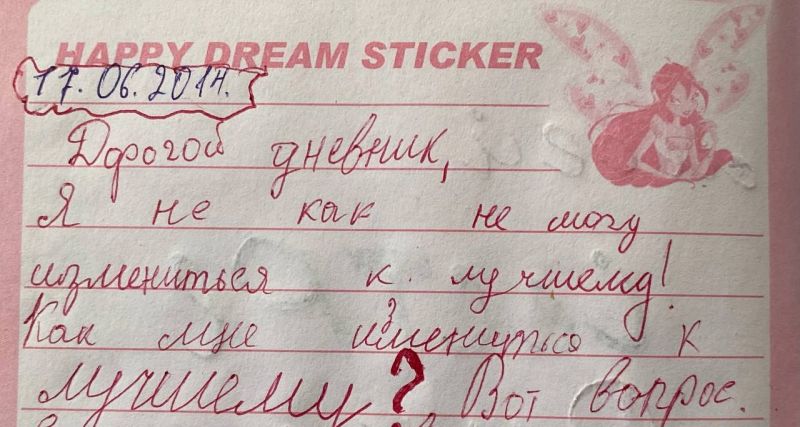 HAPPY DREAM STICKER
17.06.2014.
Дорогой дневник,
Я не как не могу
измениться к лучшему!
Как мне измениться к
лучшему? Вот вопрос.